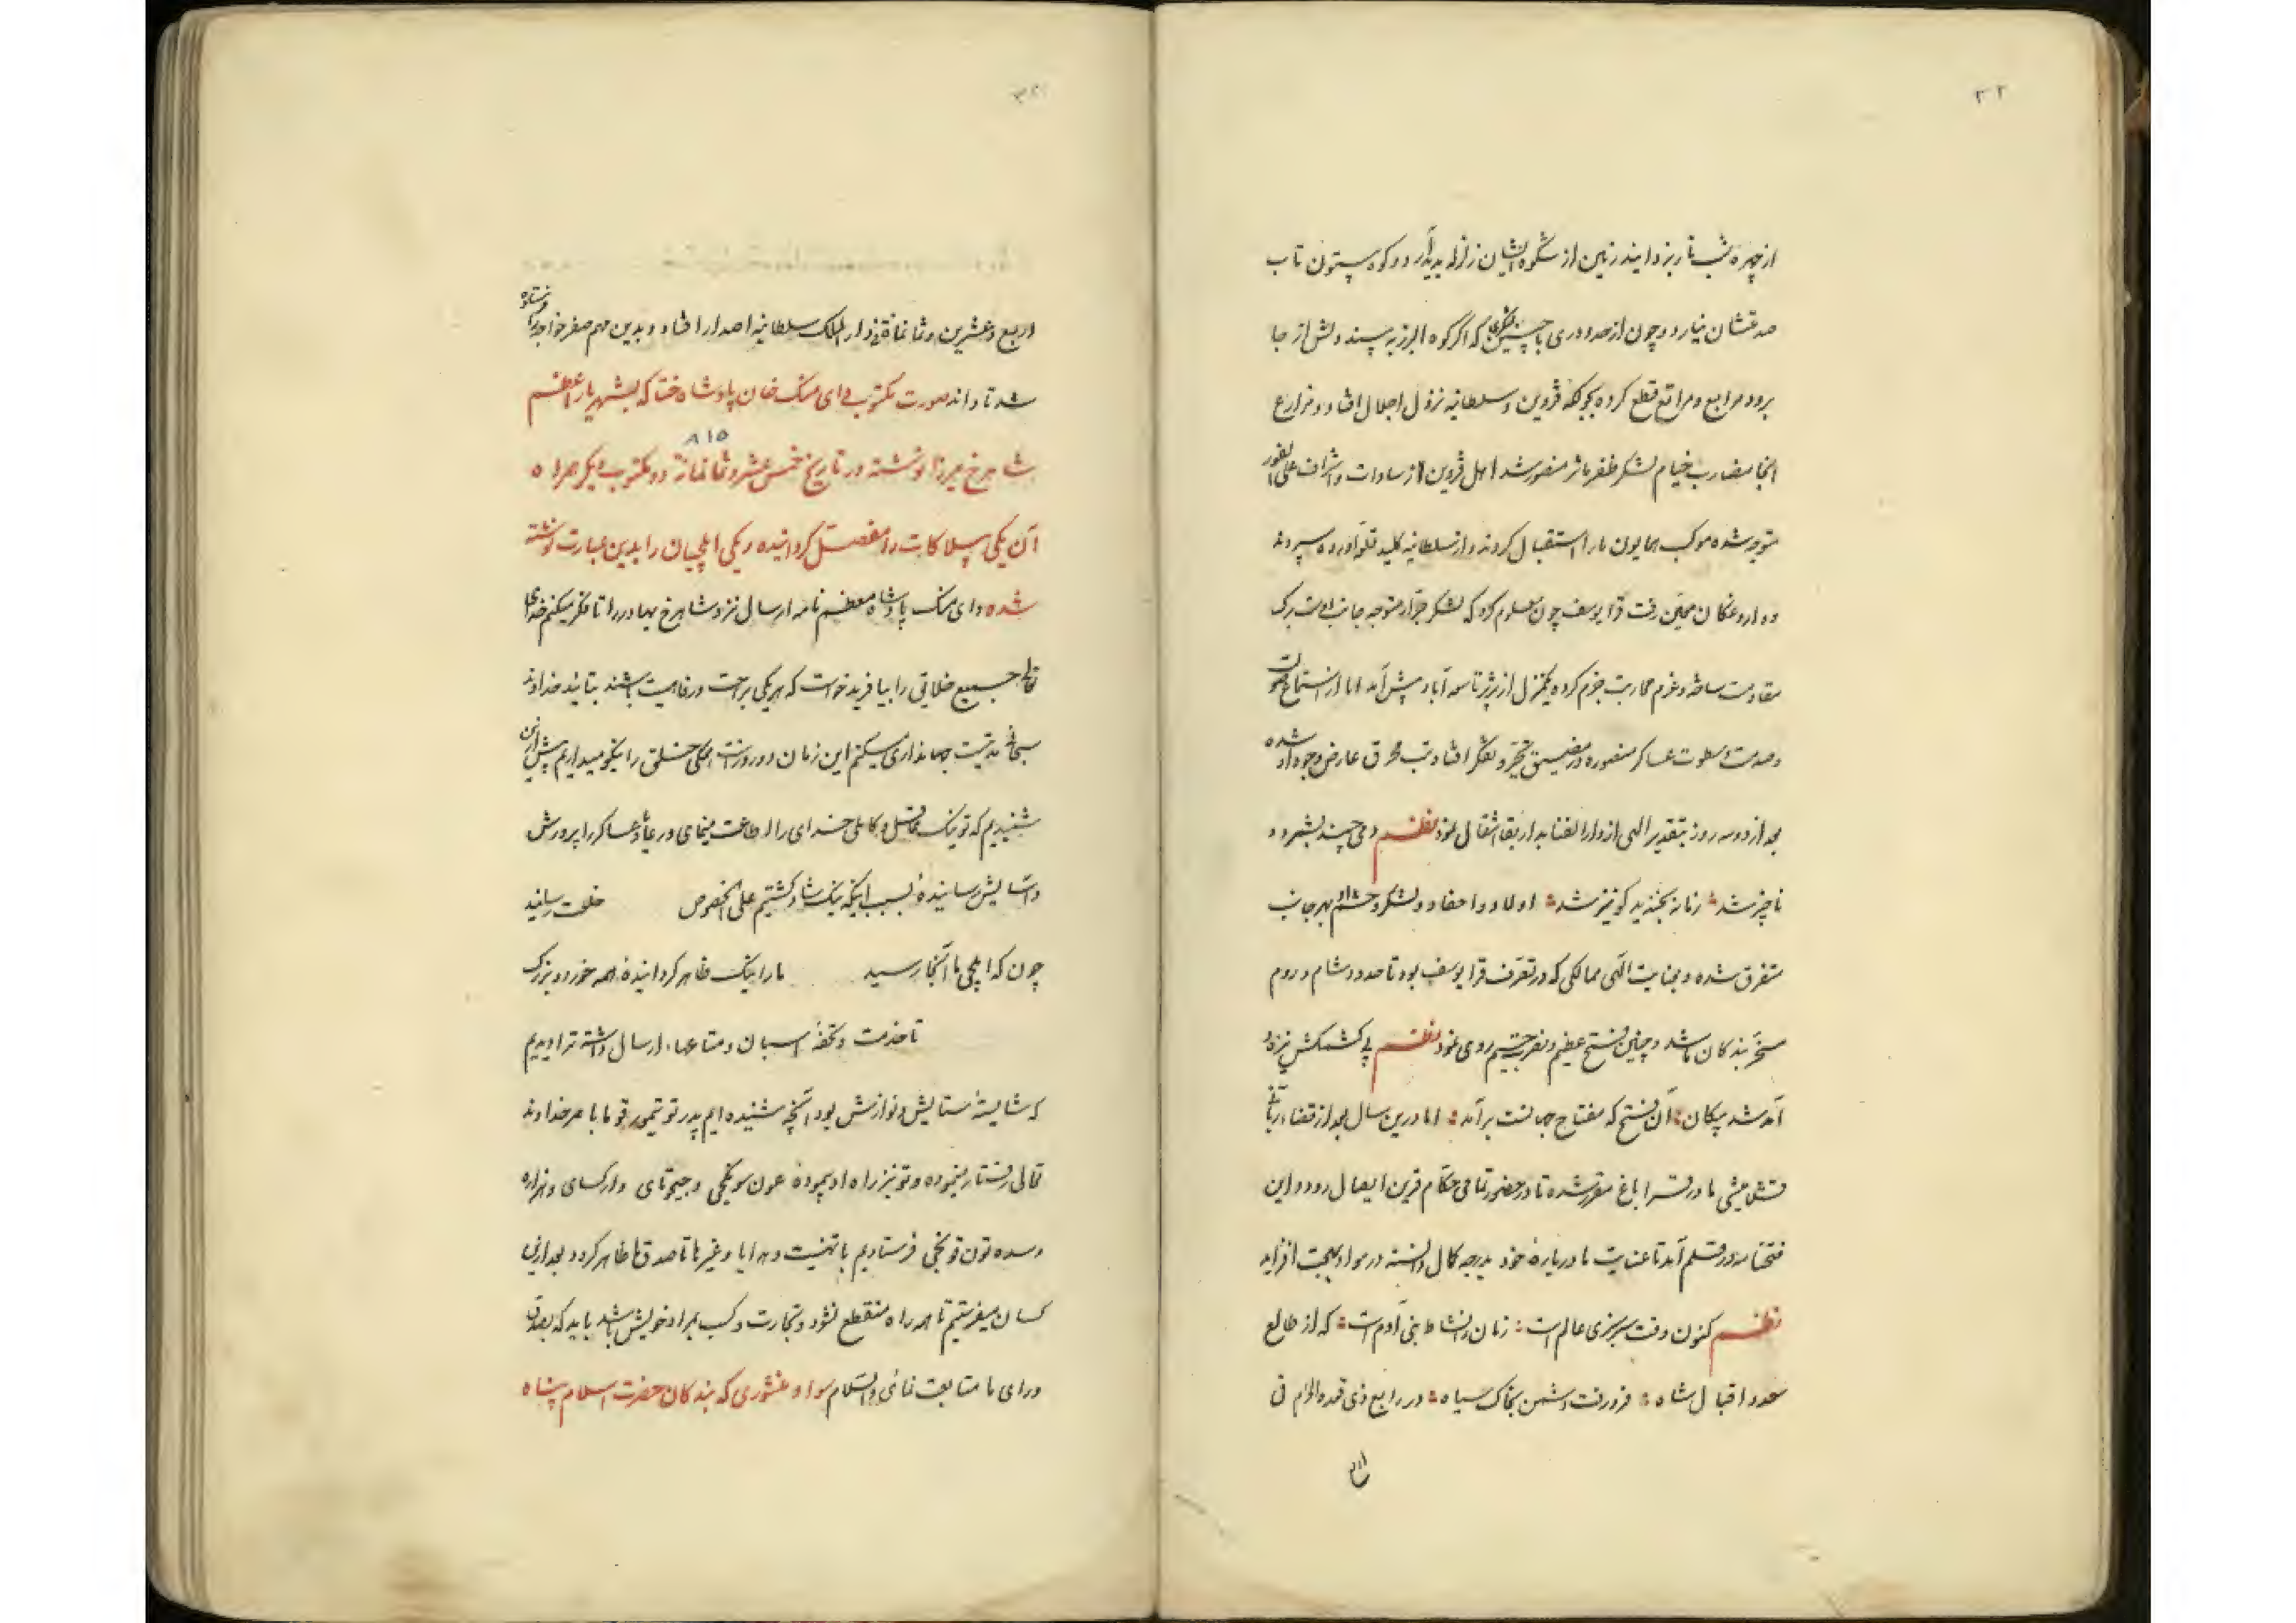 ۳۲
از چهره شب تار بزدایند زمین از شکوه ایشان زلزله پدید آرد و کوه بیستون تاب
صدمتشان نیارد و چون از حدود ری با چنین لشکری که اگر کوه البرز به پسند دلش از جا
برود مرابع و مراتع قطع کرده بجوکه قزوین و سلطانیه نزول اجلال افتاد و مزارع
انجا مضارب خیام لشکر ظفر مآثر منصور شد اهل قزوین از سادات و اشراف علی الفور
متوجه شده موکب همایون ما را استقبال کردند و از سلطانیه کلید قلعه آورده سپردند
و داروغگان معین رفت قرا یوسف چون معلوم کرد که لشکر جرار متوجه جانب اوست برک
مقاومت ساخته و عزم محاربت جزم کرده یکمنزل از تبریز تا سعدآباد پیش آمد اما از استماع صولت
و صدمت و سطوت عساکر منصوره در مضیق تحیر و تفکر افتاد تب محرق عارض وجود او شده
بعد از دو سه روز بتقدیر الهی از دار الفنا بدار بقا انتقال نمود نظم دمی چند بشمرد و
ناچیز شد زمانه بخندید کو نیز شد اولاد و احفاد و لشکر و حشم او بهر جانب
متفرق شده و بعنایت الهی ممالکی که در تصرف قرا یوسف بود تا حدود شام و روم
مسخر بندگان ما شد و چنین فتح عظیم و نصرت جسیم روی نمود نظم بی کشمکش نیزه و
آمد شد پیکان آن فتح که مفتاح جهانست برآمد اما درین سال بعد از قضاء ربانی
قشلامیشی ما در قراباغ مقرر شده تا در حضور تمامی حکام قرین ایصال رود و این
فتحنامه در قلم آمد تا عنایت ما درباره خود بدرجه کمال دانسته در مواد بهجت افزاید
نظم کنون وقت سرسبزی عالم است زمان نشاط بنی آدم است که از طالع
سعد و اقبال شاه فرو رفت دشمن بخاک سیاه در رابع ذی قعده الحرام فی
اربع
اربع و عشرین و ثمانمائة فی دار الملک سلطانیه اصدار افتاد و بدین مهم صفر خواجه را فرستاده
شد تا داند صورت مکتوب دای منک خان پادشاه ختا که بشهریار اعظم
۸۱۵
شاهرخ میرزا نوشته در تاریخ خمس عشر و ثمانمائة دو مکتوب دیگر همراه
آن یکی بیلاکات را مفصل گردانیده و یکی ایلچیان را بدین عبارت نوشته
شده دای منک پادشاه معظم نامه ارسال نزد شاهرخ بهادر را تا فکر میکنم خدای
تعالی جمیع خلائق را بیافرید خواست که هر یکی براحت و رفاهیت باشند بتایید خداوند
سبحانه تربیت جهانداری میکنم این زمان در روزنت همگی خلق را نیکو میداریم پیش ازین
شنیدیم که تو نیک عاقل و کاملی خدای را اطاعت مینمای و رعایا و عساکر را پرورش
داشتایش رسانیده بسبب اینکه نیک شاد گشتیم علی الخصوص خلعت رسانید
چون که ایلچی ما آنجا رسید ما را نیک ظاهر گردانیدهٔ همه خورد و بزرک
تا خدمت و تحفهٔ اسبان و متاعها ارسال داشته ترا دیدیم
که شایستهٔ ستایش و نوازش بود آنچه شنیده ایم پدر تو تیمور قوما با مر خداوند
تعالی رفتار مینموده و تو نیز راه او پیمودهٔ عون سونکجی و جیحوتای و ارکسای و هزاره
و سده تون قونخی فرستادیم با تهنیت و هدایا و غیرها تا صدق ما ظاهر گردد بعد ازین
کسان میفرستیم تا همه راه منقطع نشود و تجارت و کسب بمراد خویش باشد باید که بعد ازین
ورای ما متابعت نمائی والسلام سواد منشوری که بندگان حضرت اسلام پناه